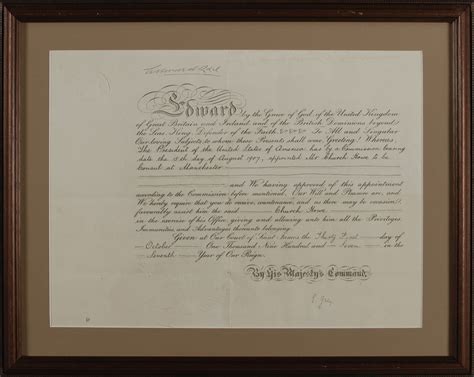 Edward by the Grace of God, of the United Kingdom
of Great Britain and Ireland and of the British Dominions beyond
the Seas King, Defender of the Faith, &c &c &c To All and Singular
Our loving Subjects to whom these Presents shall come, Greeting! Whereas
The President of the United States of America has by a Commission bearing
date the 15th day of August 1907, appointed Mr Church Howe to be
Consul at Manchester
and We having approved of this appointment
according to the Commission before mentioned, Our Will and Pleasure are, and
We hereby require that you do receive, countenance, and as there may be occasion,
favourably assist him the said Church Howe
in the exercise of his Office, giving and allowing unto him all the Privileges
Immunities and Advantages thereunto belonging.
Given at Our Court of Saint James the Thirty First day of
October One Thousand Nine Hundred and Seven in the
Seventh Year of Our Reign.
By His Majesty's Command,
E. Grey